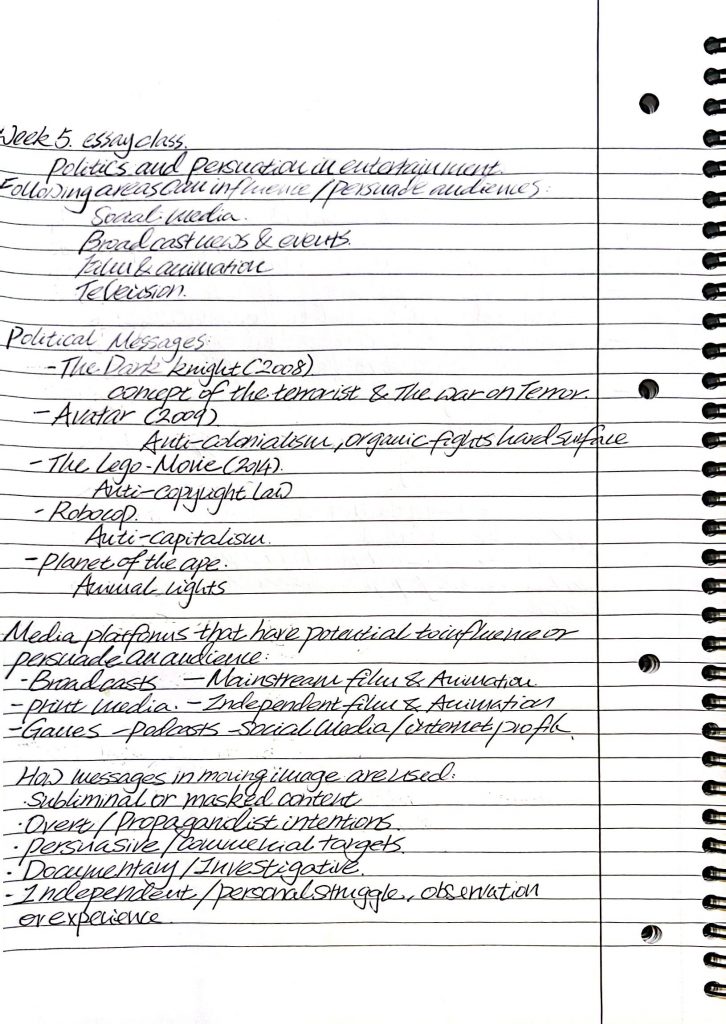 Week 5. essay class.
Politics and persuation in entertainment.
Following areas can influence/persuade audiences:
Social media.
Broadcast news & events.
Film & animation
Television.
Political Messages:
- The Dark knight (2008)
concept of the terrorist & The war on Terror.
- Avatar (2009)
Anti-colonialism, organic fights hard surface
- The Lego-Movie (2014).
Anti-copyright law
- Robocop.
Anti-capitalism.
- Planet of the ape.
Animal rights
Media platforms that have potential to influence or
persuade an audience:
- Broadcasts - Mainstream film & Animation.
- print media. - Independent film & Animation
- Games - Podcasts - Social Media/internet profile.
How messages in moving image are used:
· Subliminal or masked content
· Overt/Propagandist intentions.
· Persuasive/commercial targets.
· Documentary/Investigative.
· Independent/personal struggle, observation
or experience.